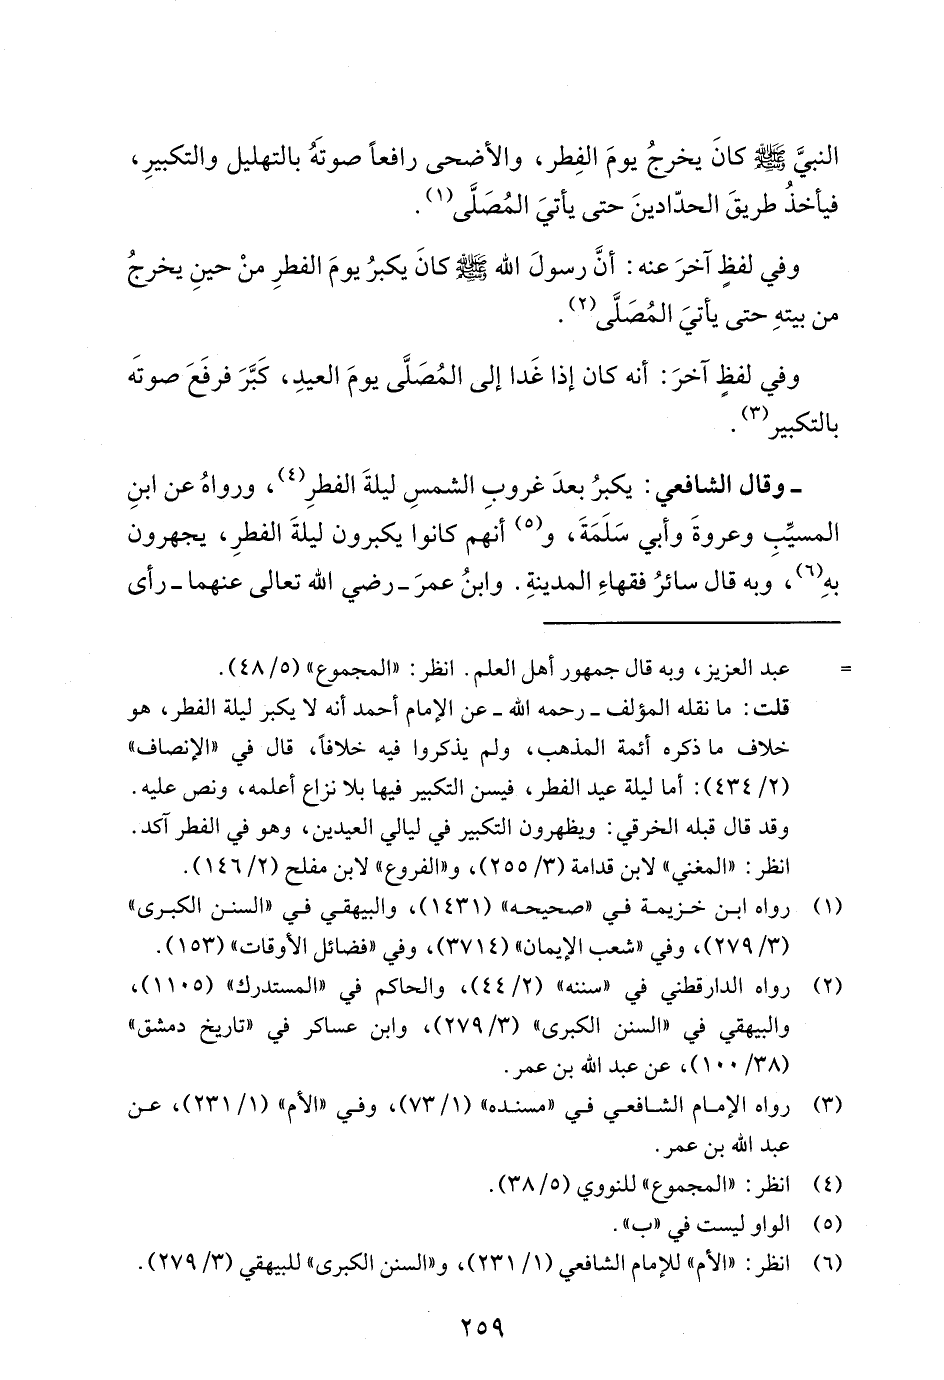 النبيَّ ﷺ كانَ يخرجُ يومَ الفِطر، والأضحى رافعاً صوتَهُ بالتهليل والتكبيرِ،
فيأخذُ طريقَ الحدّادينَ حتى يأتيَ المُصَلَّى(١).
وفي لفظٍ آخرَ عنه: أنَّ رسولَ الله ﷺ كانَ يكبرُ يومَ الفطرِ منْ حينِ يخرجُ
من بيتهِ حتى يأتيَ المُصَلَّى(٢).
وفي لفظٍ آخرَ: أنه كان إذا غَدا إلى المُصَلَّى يومَ العيدِ، كَبَّرَ فرفَعَ صوتَه
بالتكبير(٣).
ـ وقال الشافعي: يكبرُ بعدَ غروبِ الشمسِ ليلةَ الفطرِ(٤)، ورواهُ عن ابنِ
المسيِّبِ وعروةَ وأبي سَلَمَةَ، و(٥) أنهم كانوا يكبرون ليلةَ الفطرِ، يجهرون
بهِ(٦)، وبه قال سائرُ فقهاءِ المدينةِ. وابنُ عمرَ ـ رضي الله تعالى عنهما ـ رأى
= عبد العزيز، وبه قال جمهور أهل العلم. انظر: «المجموع» (٥/ ٤٨).
قلت: ما نقله المؤلف ـ رحمه الله ـ عن الإمام أحمد أنه لا يكبر ليلة الفطر، هو
خلاف ما ذكره أئمة المذهب، ولم يذكروا فيه خلافاً، قال في «الإنصاف»
(٢/ ٤٣٤): أما ليلة عيد الفطر، فيسن التكبير فيها بلا نزاع أعلمه، ونص عليه.
وقد قال قبله الخرقي: ويظهرون التكبير في ليالي العيدين، وهو في الفطر آكد.
انظر: «المغني» لابن قدامة (٣/ ٢٥٥)، و«الفروع» لابن مفلح (٢/ ١٤٦).
(١) رواه ابن خزيمة في «صحيحه» (١٤٣١)، والبيهقي في «السنن الكبرى»
(٣/ ٢٧٩)، وفي «شعب الإيمان» (٣٧١٤)، وفي «فضائل الأوقات» (١٥٣).
(٢) رواه الدارقطني في «سننه» (٢/ ٤٤)، والحاكم في «المستدرك» (١١٠٥)،
والبيهقي في «السنن الكبرى» (٣/ ٢٧٩)، وابن عساكر في «تاريخ دمشق»
(٣٨/ ١٠٠)، عن عبد الله بن عمر.
(٣) رواه الإمام الشافعي في «مسنده» (١/ ٧٣)، وفي «الأم» (١/ ٢٣١)، عن
عبد الله بن عمر.
(٤) انظر: «المجموع» للنووي (٥/ ٣٨).
(٥) الواو ليست في «ب».
(٦) انظر: «الأم» للإمام الشافعي (١/ ٢٣١)، و«السنن الكبرى» للبيهقي (٣/ ٢٧٩).
٢٥٩